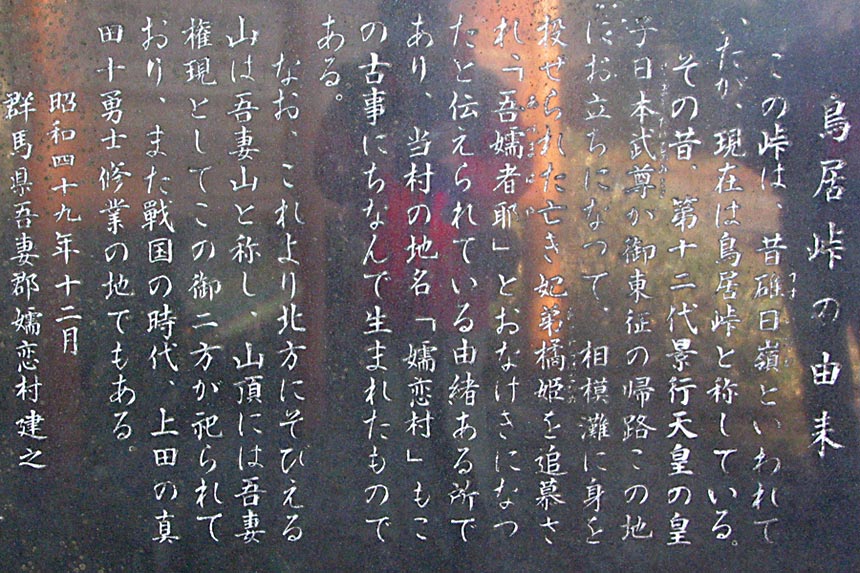 鳥居峠の由来
この峠は、昔碓日嶺といわれて
いたが、現在は鳥居峠と称している。
その昔、第十二代景行天皇の皇
子日本武尊が御東征の帰路この地
にお立ちになって、相模灘に身を
投ぜられた亡き妃弟橘姫を追慕さ
れ、「吾嬬者耶」とおなげきになっ
たと伝えられている由緒ある所で
あり、当村の地名「嬬恋村」もこ
の古事にちなんで生まれたもので
ある。
なお、これより北方にそびえる
山は吾妻山と称し、山頂には吾妻
権現としてこの御二方が祀られて
おり、また戦国の時代、上田の真
田十勇士修業の地でもある
昭和四十九年十二月
群馬県吾妻郡嬬恋村建之